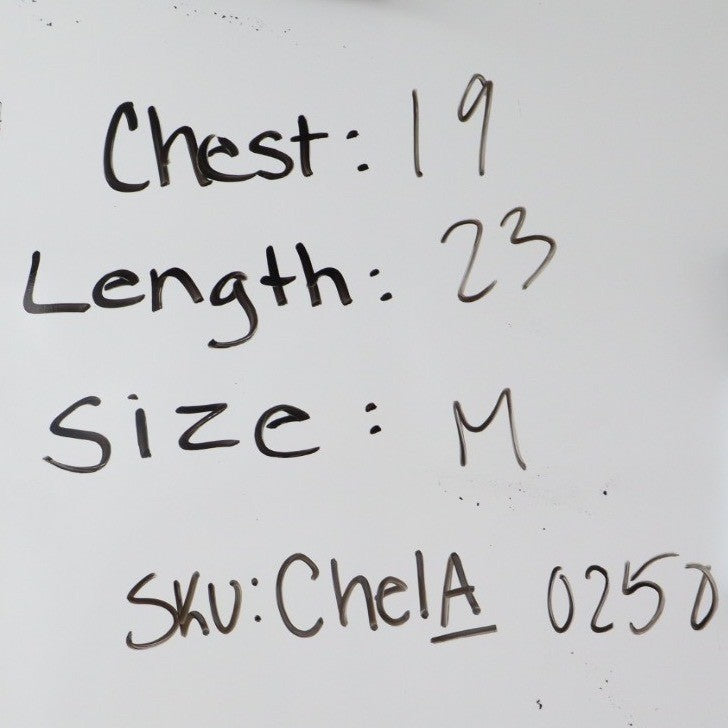 Chest: 19
Length: 23
Size: M
SKU: ChelA 0250